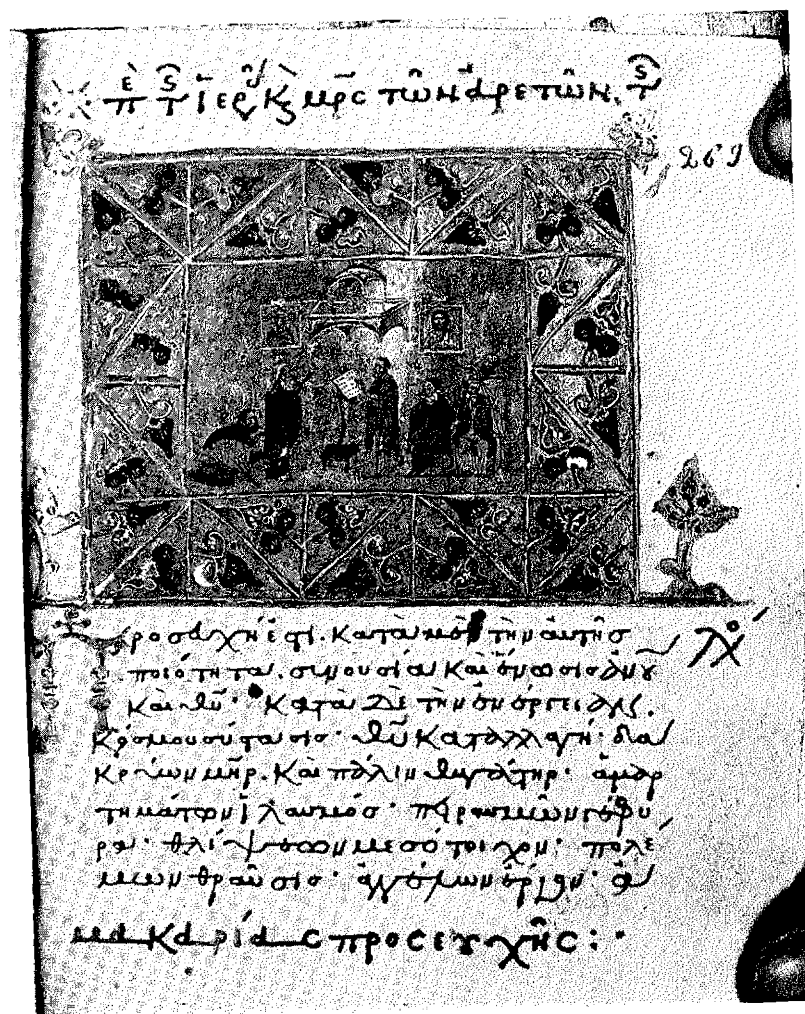 π τ ἱερ κ μρς τῶν ἀρετῶν. τ
269
Προσευχή ἐστι. κατὰ μὲν τὴν αὐτῆς
ποιότητα. συνουσία καὶ ἕνωσις ἀνου
καὶ θυ· κατὰ δὲ τὴν ἐνέργειαν.
κόσμου σύστασις· θυ καταλλαγή· δα
κρύων μηρ. καὶ πάλιν θυγάτηρ· ἁμαρ
τημάτων ἱλασμός· πειρασμῶν γέφυ
ρα· θλίψεων μεσότοιχον· πολέ
μων θραῦσις· ἀγγέλων ἔργον·
μακαρίας προσευχῆς:·